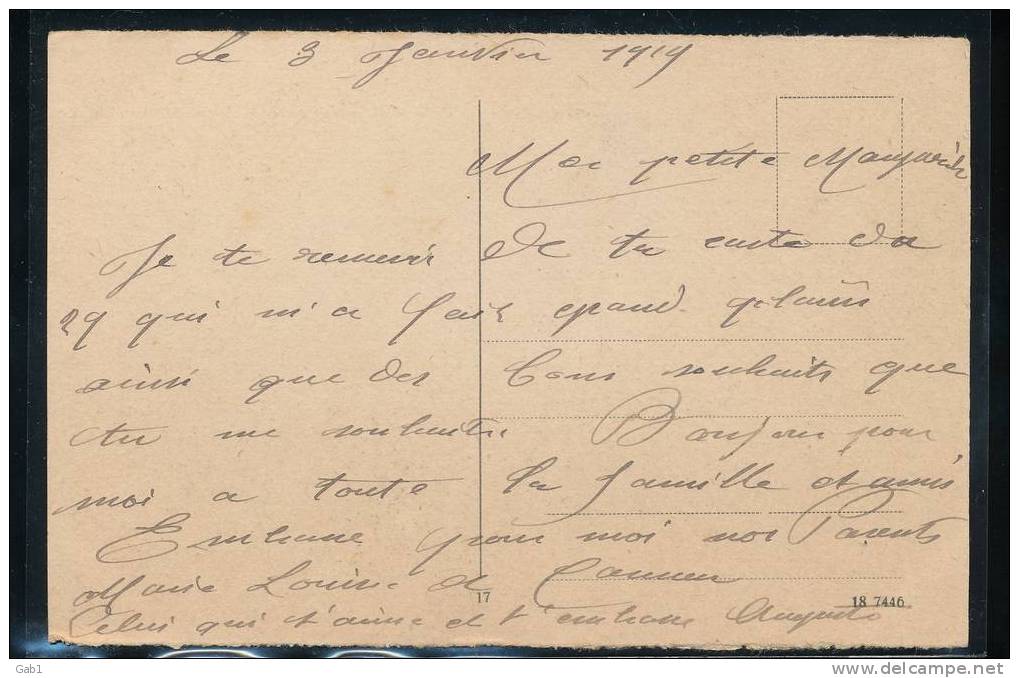 Le 3 Janvier 1919
Ma petite Marguerite
Je te remercie de ta carte du
29 qui m'a fait grand plaisir
ainsi que des bons souhaits que
tu me souhaite Bonjour pour
moi a toute la famille et amis
Embrasse pour moi nos Parents
Marie Louise et Carmen
Celui qui t'aime et t'embrasse Auguste
17
18 7446
Gab1
www.delcampe.net